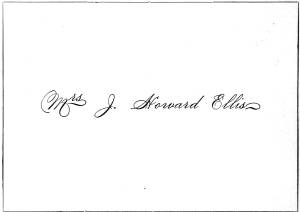 Mrs J. Howard Ellis